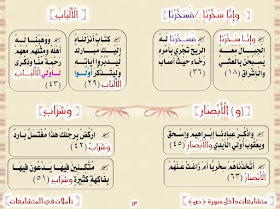 وإنا سخرنا / فسخرنا
الألباب
إنا سخرنا
الجبال معه
يسبحن بالعشي
والإشراق (١٨)
فسخرنا له
الريح تجري بأمره
رخاء حيث أصاب
(٣٦)
كتاب أنزلناه
إليك مبارك
ليدبروا آياته
وليتذكر أولوا
الألباب (٢٩)
ووهبنا له
أهله ومثلهم معهم
رحمة منا وذكرى
لأولي الألباب
(٤٣)
(و) الأبصار
وشراب
واذكر عبادنا إبراهيم وإسحق
ويعقوب أولي الأيدي والأبصار (٤٥)
أتخذناهم سخريا أم زاغت عنهم
الأبصار (٦٣)
اركض برجلك هذا مغتسل بارد
وشراب (٤٢)
متكئين فيها يدعون فيها
بفاكهة كثيرة وشراب (٥١)
متشابهات داخل سورة ﴿ ص ﴾
تأملات في المتشابهات